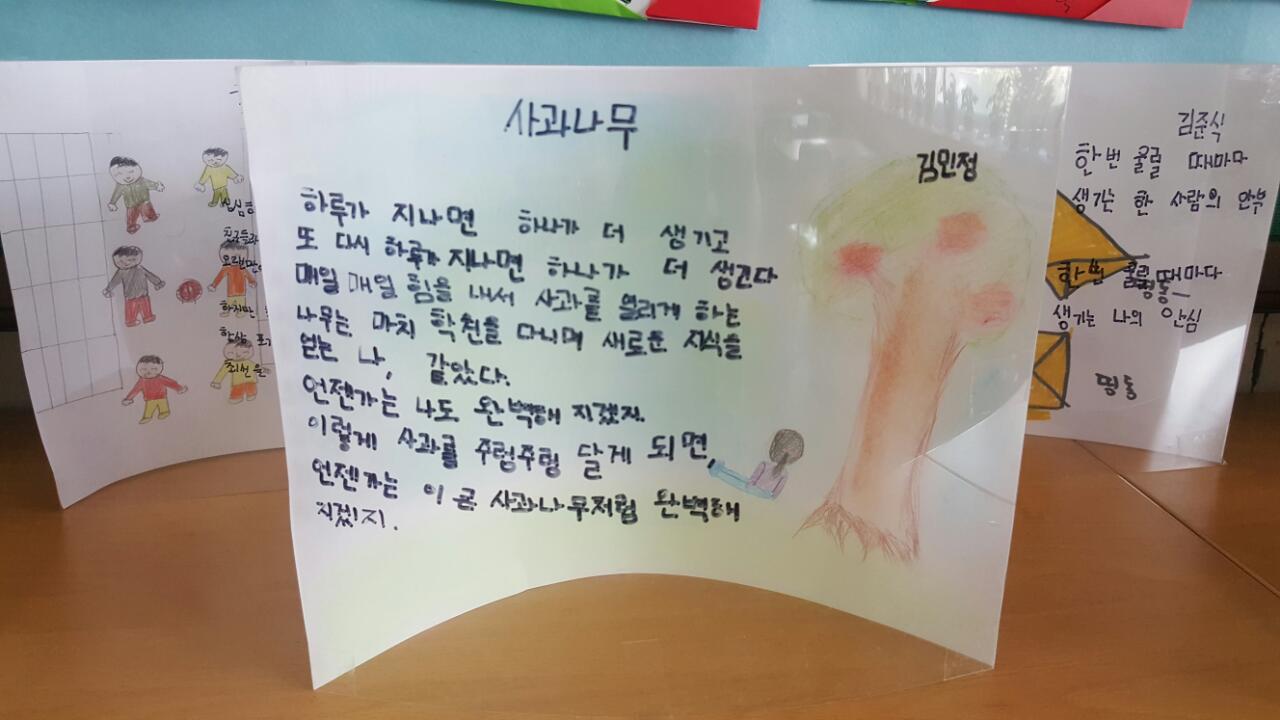 사과나무
김민정
하루가 지나면 하나가 더 생기고
또 다시 하루가 지나면 하나가 더 생긴다
매일 매일 힘을 내서 사과를 열리게 하는
나무는 마치 학원을 다니며 새로운 지식을
얻는 나, 같았다.
언젠가는 나도 완벽해 지겠지.
이렇게 사과를 주렁주렁 달게 되면
언젠가는 이 큰 사과나무처럼 완벽해
지겠지.
심심하
친구들과
오랜만
하지만
항상 포기
최선을
김준식
한번 울릴 때마다
생기는 한 사람의 안부
한번 울릴 때마다
띵동~
생기는 나의 안심
띵동